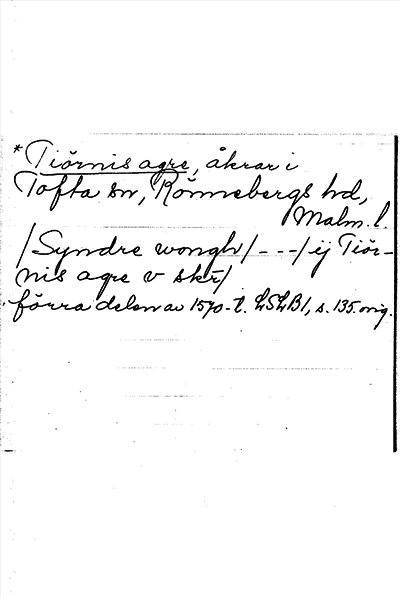 *Tiörnis agre, åkrar i
Tofta sn, Rönnebergs hd,
Malm. l.
/Syndre wongh/ - - -/ ij Tiör-
nis agre v skr/
förra delen av 1570-t. LSLB1, s. 135. orig.